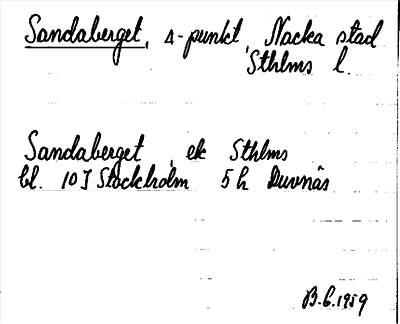 Sandaberget, Δ-punkt, Nacka stad
Sthlms l.
Sandaberget, ek Sthlms
bl. 10 I Stockholm 5 h Duvnäs
B.G. 1959